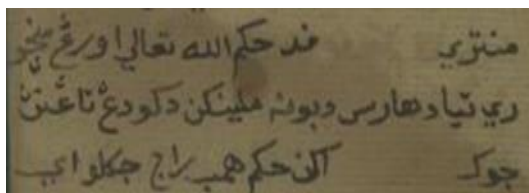 منتري فد حكم الله تعالي اورڠ منچو
ري تياد هارس دبونه ملينكن دكودڠ تاڠنڽ
جوک اكن حكم همب راج جكلو اي